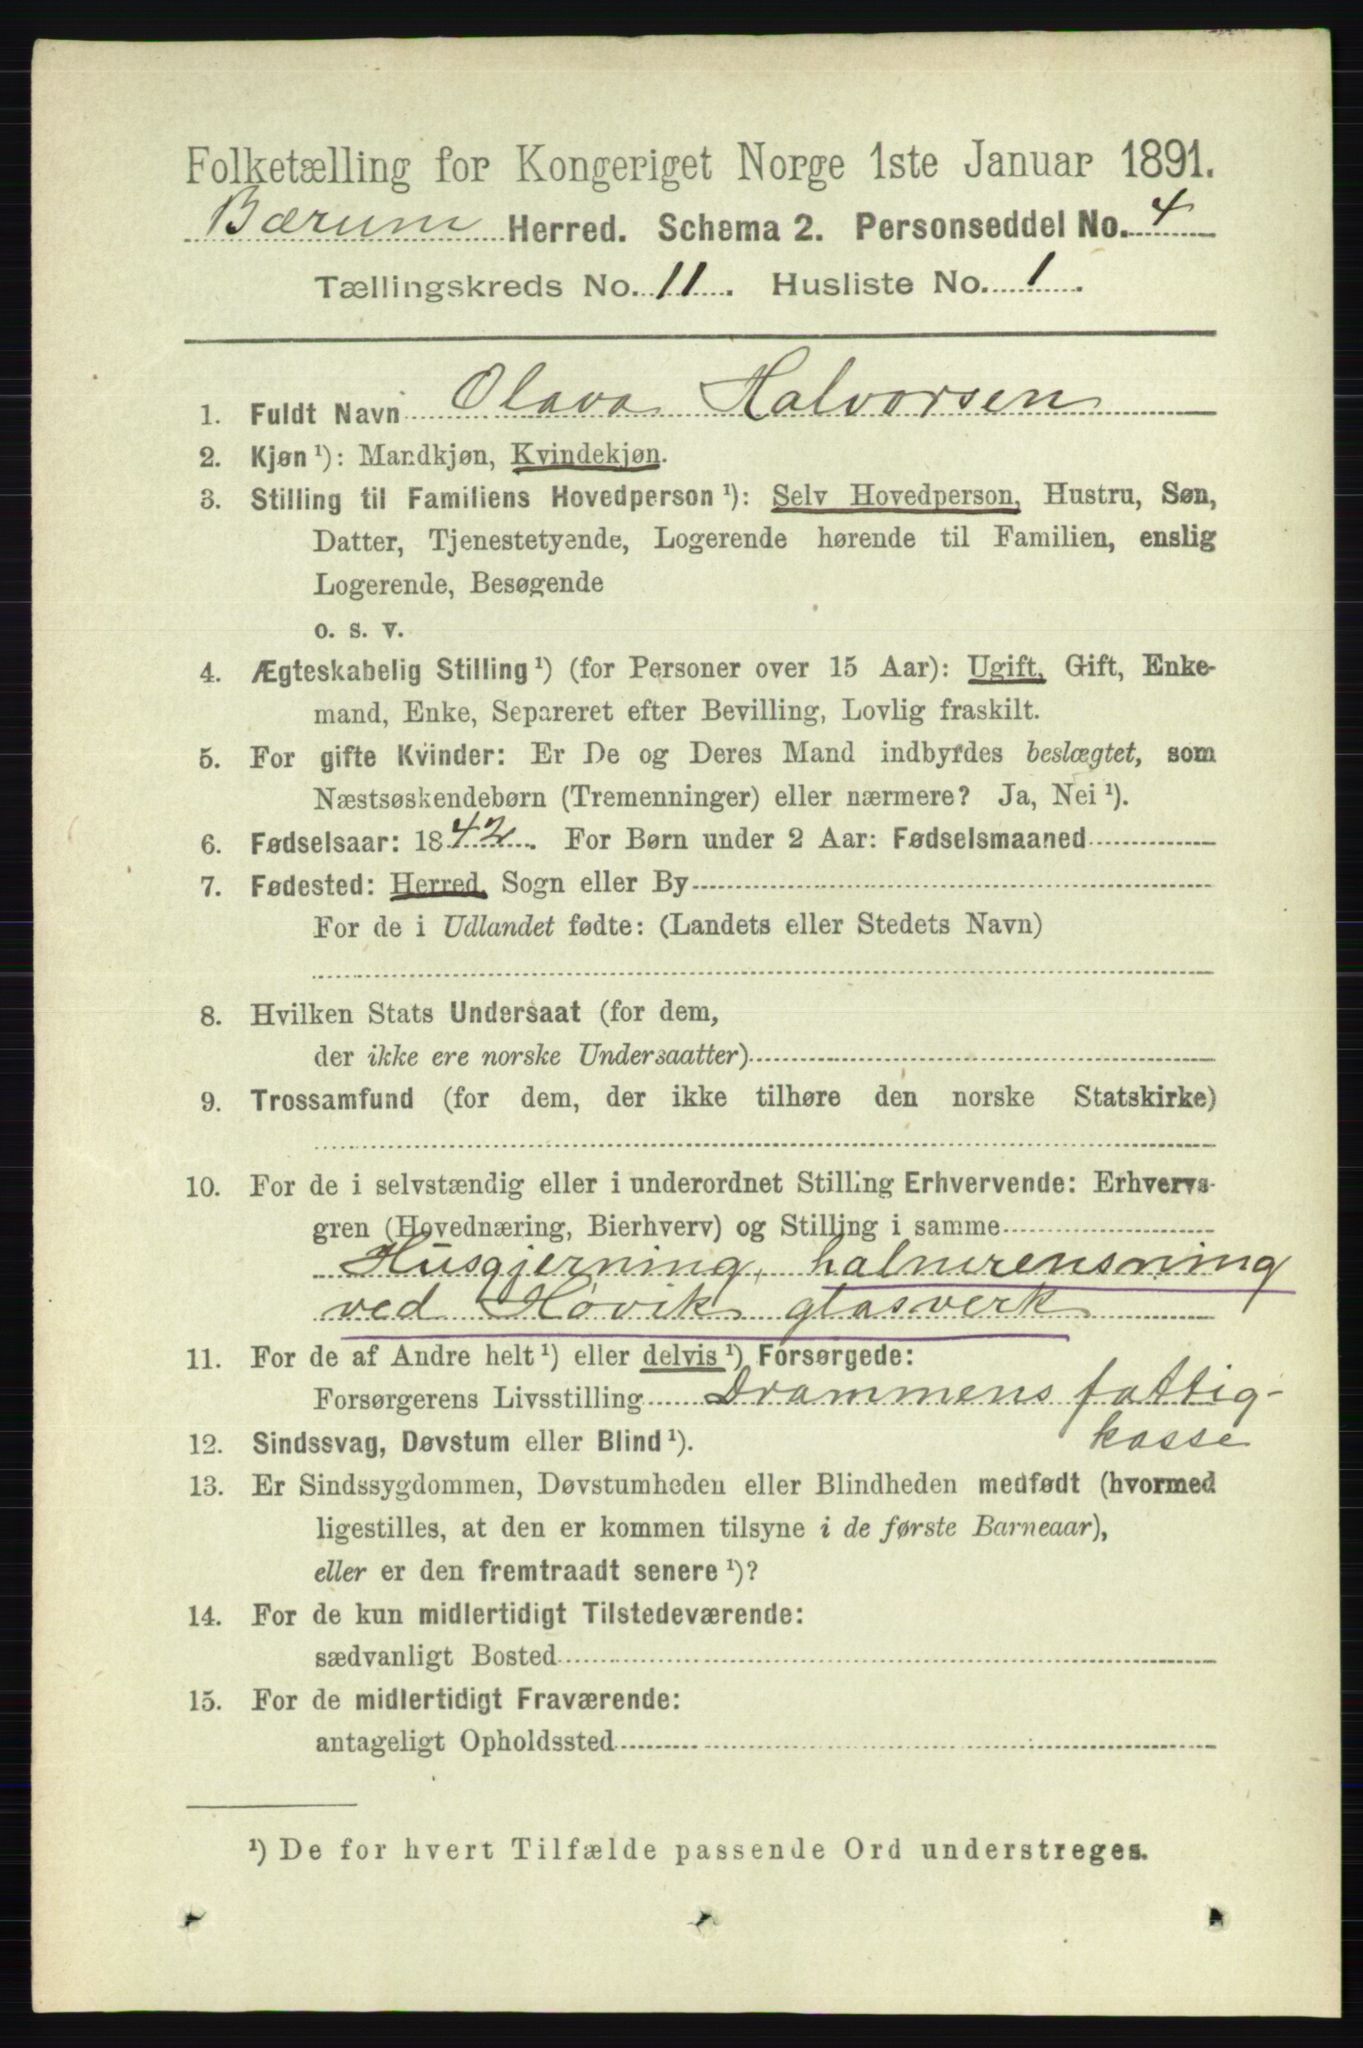 Folketælling for Kongeriget Norge 1ste Januar 1891.
Bærum Herred. Schema 2. Personseddel No. 4
Tællingskreds No. 11. Husliste No. 1.
1. Fuldt Navn Olava Halvorsen
2. Kjøn ¹): Mandkjøn, Kvindekjøn.
3. Stilling til Familiens Hovedperson ¹): Selv Hovedperson, Hustru, Søn,
Datter, Tjenestetyende, Logerende hørende til Familien, enslig
Logerende, Besøgende
o. s. v.
4. Ægteskabelig Stilling ¹) (for Personer over 15 Aar): Ugift, Gift, Enke-
mand, Enke, Separeret efter Bevilling, Lovlig fraskilt.
5. For gifte Kvinder: Er De og Deres Mand indbyrdes beslægtet, som
Næstsøskendebørn (Tremenninger) eller nærmere? Ja, Nei ¹).
6. Fødselsaar: 1842. For Børn under 2 Aar: Fødselsmaaned
7. Fødested: Herred, Sogn eller By
For de i Udlandet fødte: (Landets eller Stedets Navn)
8. Hvilken Stats Undersaat (for dem,
der ikke ere norske Undersaatter)
9. Trossamfund (for dem, der ikke tilhøre den norske Statskirke)
10. For de i selvstændig eller i underordnet Stilling Erhvervende: Erhvervs-
gren (Hovednæring, Bierhverv) og Stilling i samme
Husgjerning, halmrensning
ved Høvik glasverk
11. For de af Andre helt ¹) eller delvis ¹) Forsørgede:
Forsørgerens Livsstilling Drammens fattig-
kasse
12. Sindssvag, Døvstum eller Blind ¹).
13. Er Sindssygdommen, Døvstumheden eller Blindheden medfødt (hvormed
ligestilles, at den er kommen tilsyne i de første Barneaar),
eller er den fremtraadt senere ¹)?
14. For de kun midlertidigt Tilstedeværende:
sædvanligt Bosted
15. For de midlertidigt Fraværende:
antageligt Opholdssted
¹) De for hvert Tilfælde passende Ord understreges.